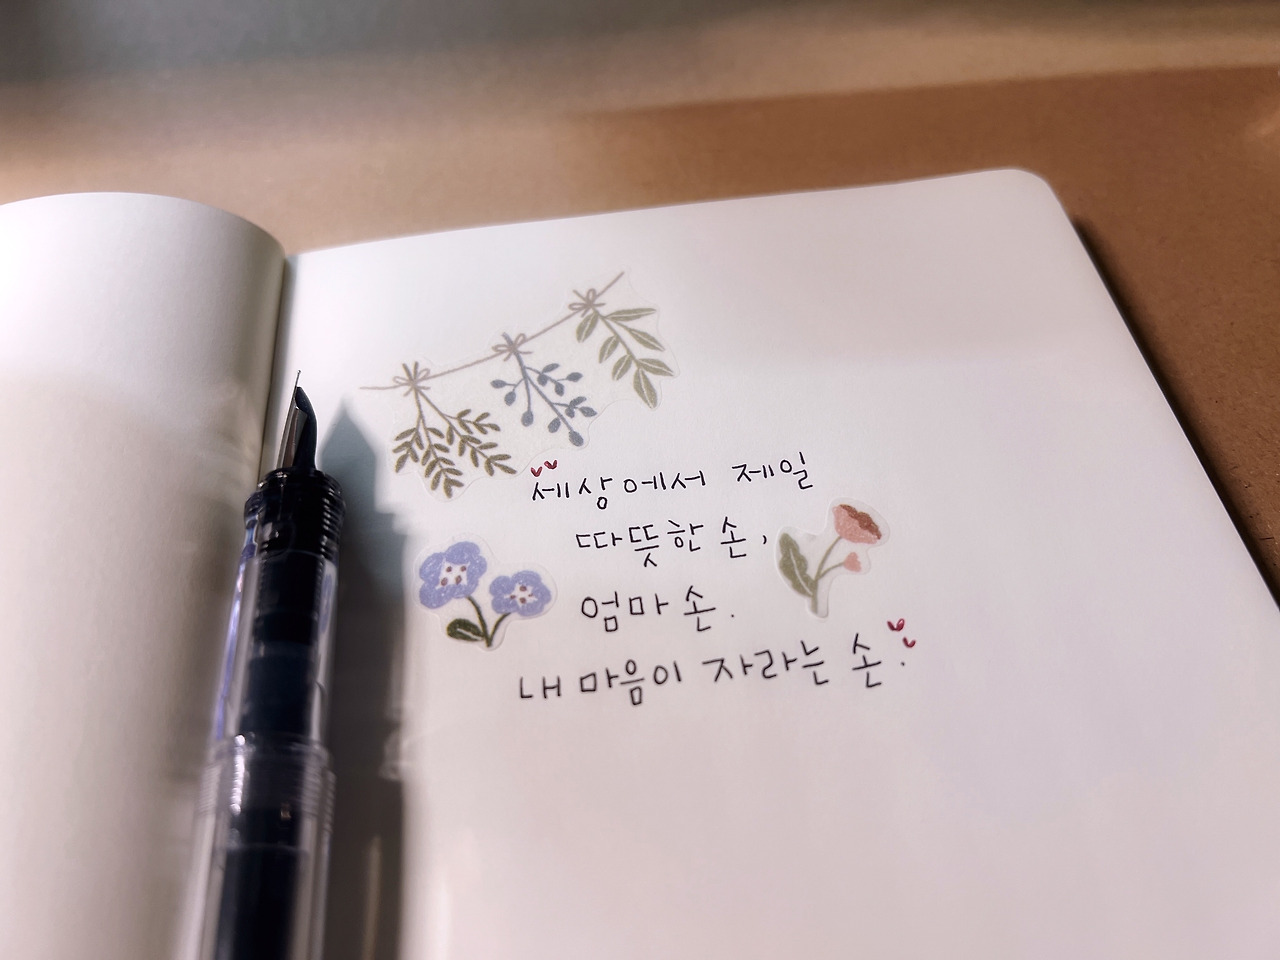 세상에서 제일
따뜻한 손,
엄마 손.
내 마음이 자라는 손.